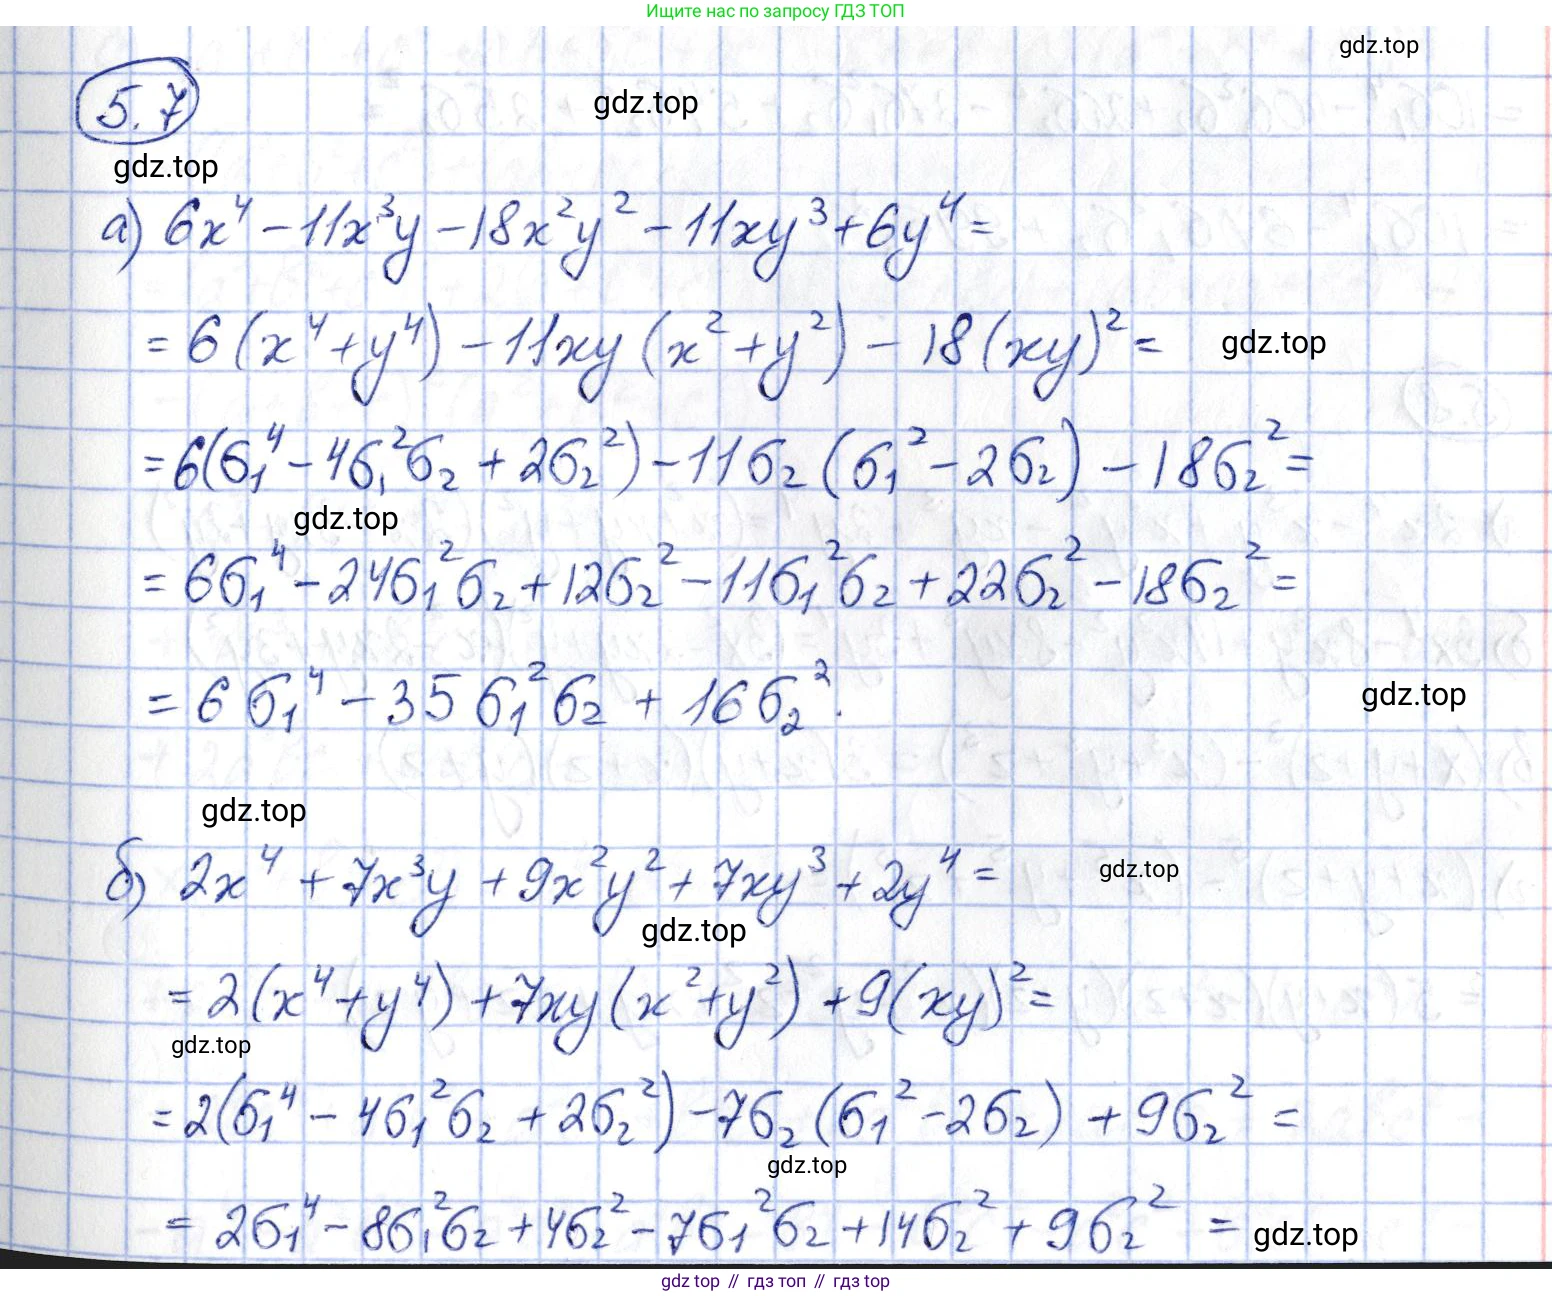 Ищите нас по запросу ГДЗ ТОП
gdz.top
5.7
gdz.top
gdz.top
а) 6x⁴ - 11x³y - 18x²y² - 11xy³ + 6y⁴ =
= 6(x⁴ + y⁴) - 11xy(x² + y²) - 18(xy)² =
gdz.top
= 6(б₁⁴ - 4б₁²б₂ + 2б₂²) - 11б₂(б₁² - 2б₂) - 18б₂² =
gdz.top
= 6б₁⁴ - 24б₁²б₂ + 12б₂² - 11б₁²б₂ + 22б₂² - 18б₂² =
= 6б₁⁴ - 35б₁²б₂ + 16б₂².
gdz.top
gdz.top
б) 2x⁴ + 7x³y + 9x²y² + 7xy³ + 2y⁴ =
gdz.top
gdz.top
= 2(x⁴ + y⁴) + 7xy(x² + y²) + 9(xy)² =
gdz.top
= 2(б₁⁴ - 4б₁²б₂ + 2б₂²) - 7б₂(б₁² - 2б₂) + 9б₂² =
gdz.top
= 2б₁⁴ - 8б₁²б₂ + 4б₂² - 7б₁²б₂ + 14б₂² + 9б₂² =
gdz.top
gdz top // гдз топ // гдз top